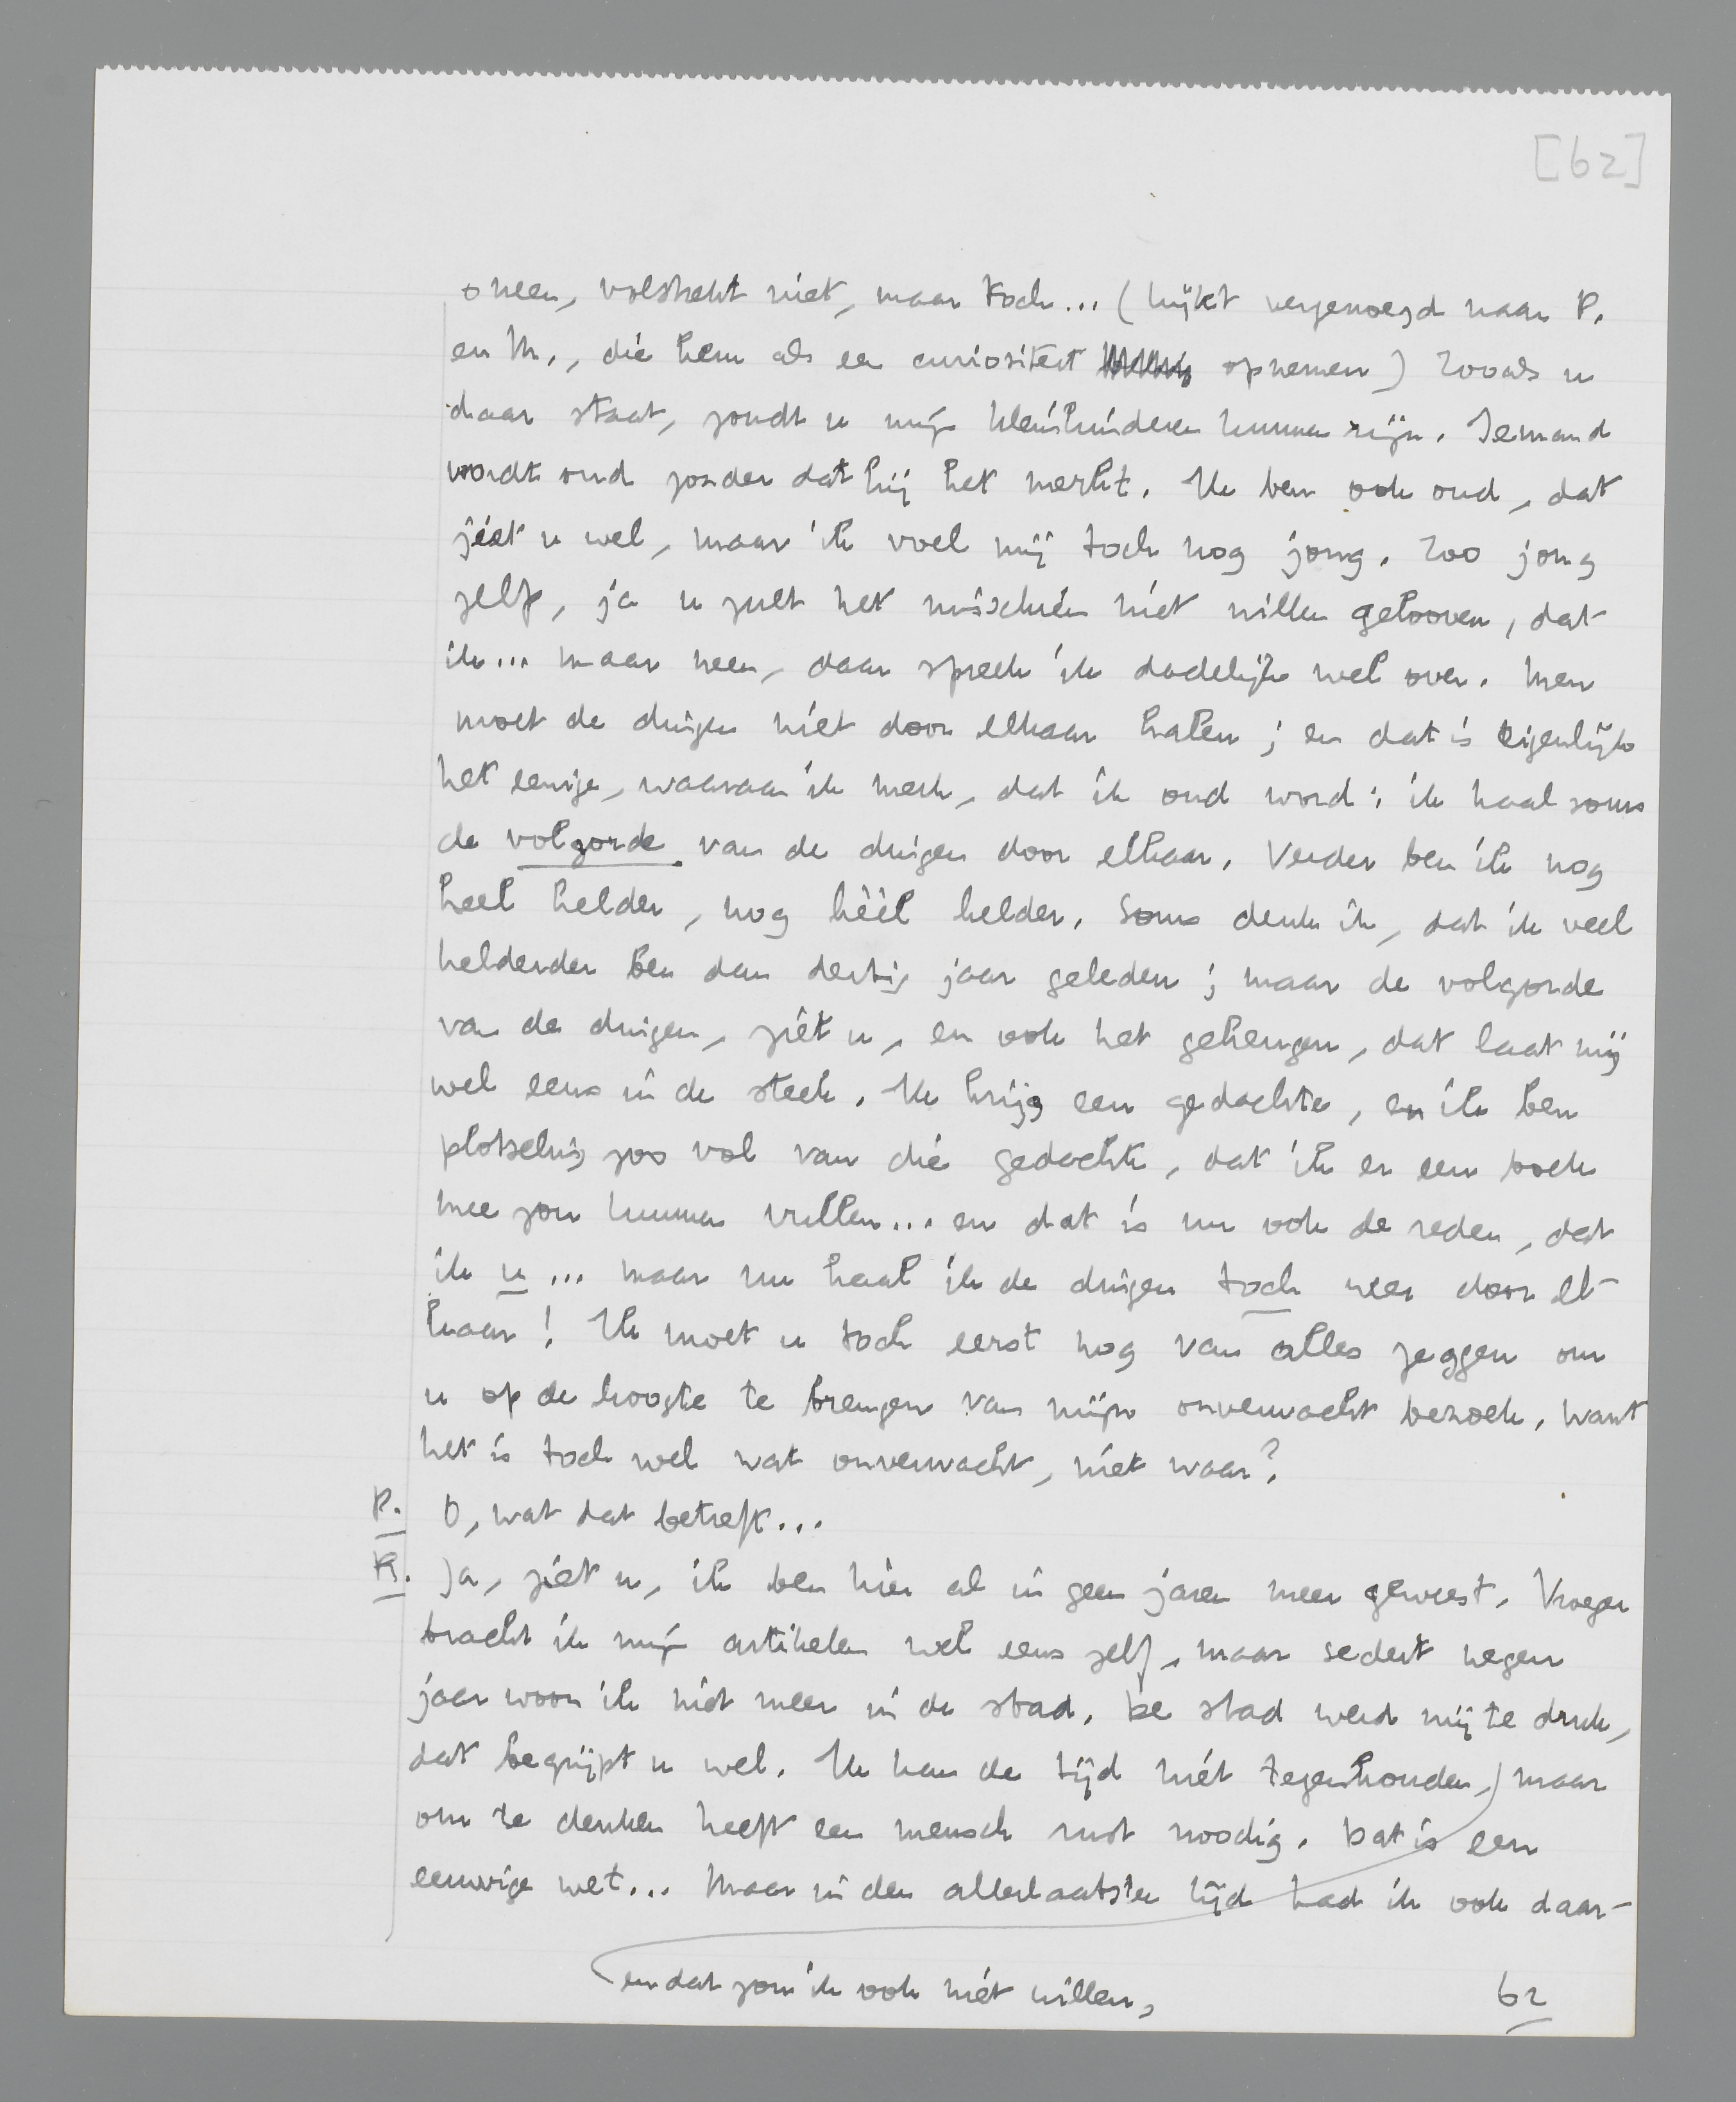 [62]
o neen, volstrekt niet, maar toch... (kijkt vergenoegd naar P.
en M., die hem als een curiositeit opnemen) Zooals u
daar staat, zoudt u mijn kleinkinderen kunnen zijn. Iemand
wordt oud zonder dat hij het merkt. Ik ben ook oud, dat
ziet u wel, maar ik voel mij toch nog jong. Zoo jong
zelfs, ja u zult het misschien niet willen gelooven, dat
ik... maar neen, daar spreek ik dadelijk wel over. Men
moet de dingen niet door elkaar halen; en dat is eigenlijk
het eenige, waaraan ik merk, dat ik oud word: ik haal soms
de volgorde van de dingen door elkaar. Verder ben ik nog
heel helder, nog héél helder. Soms denk ik, dat ik veel
helderder ben dan dertig jaar geleden; maar de volgorde
van de dingen, ziet u, en ook het geheugen, dat laat mij
wel eens in de steek. Ik krijg een gedachte, en ik ben
plotseling zoo vol van die gedachte, dat ik er een boek
mee zou kunnen vullen... en dat is nu ook de reden, dat
ik u... maar nu haal ik de dingen toch weer door el-
kaar! Ik moet u toch eerst nog van alles zeggen om
u op de hoogte te brengen van mijn onverwacht bezoek, want
het is toch wel wat onverwacht, niet waar?
P. O, wat dat betreft...
R. Ja, ziet u, ik ben hier al in geen jaren meer geweest. Vroeger
bracht ik mijn artikelen wel eens zelf, maar sedert negen
jaar woon ik niet meer in de stad. De stad werd mij te druk,
dat begrijpt u wel. Ik kan de tijd niet tegenhouden, maar
om te denken heeft een mensch rust noodig. Dat is een
eeuwige wet... Maar in den allerlaatsten tijd had ik ook daar-
en dat zou ik ook niet willen,
62